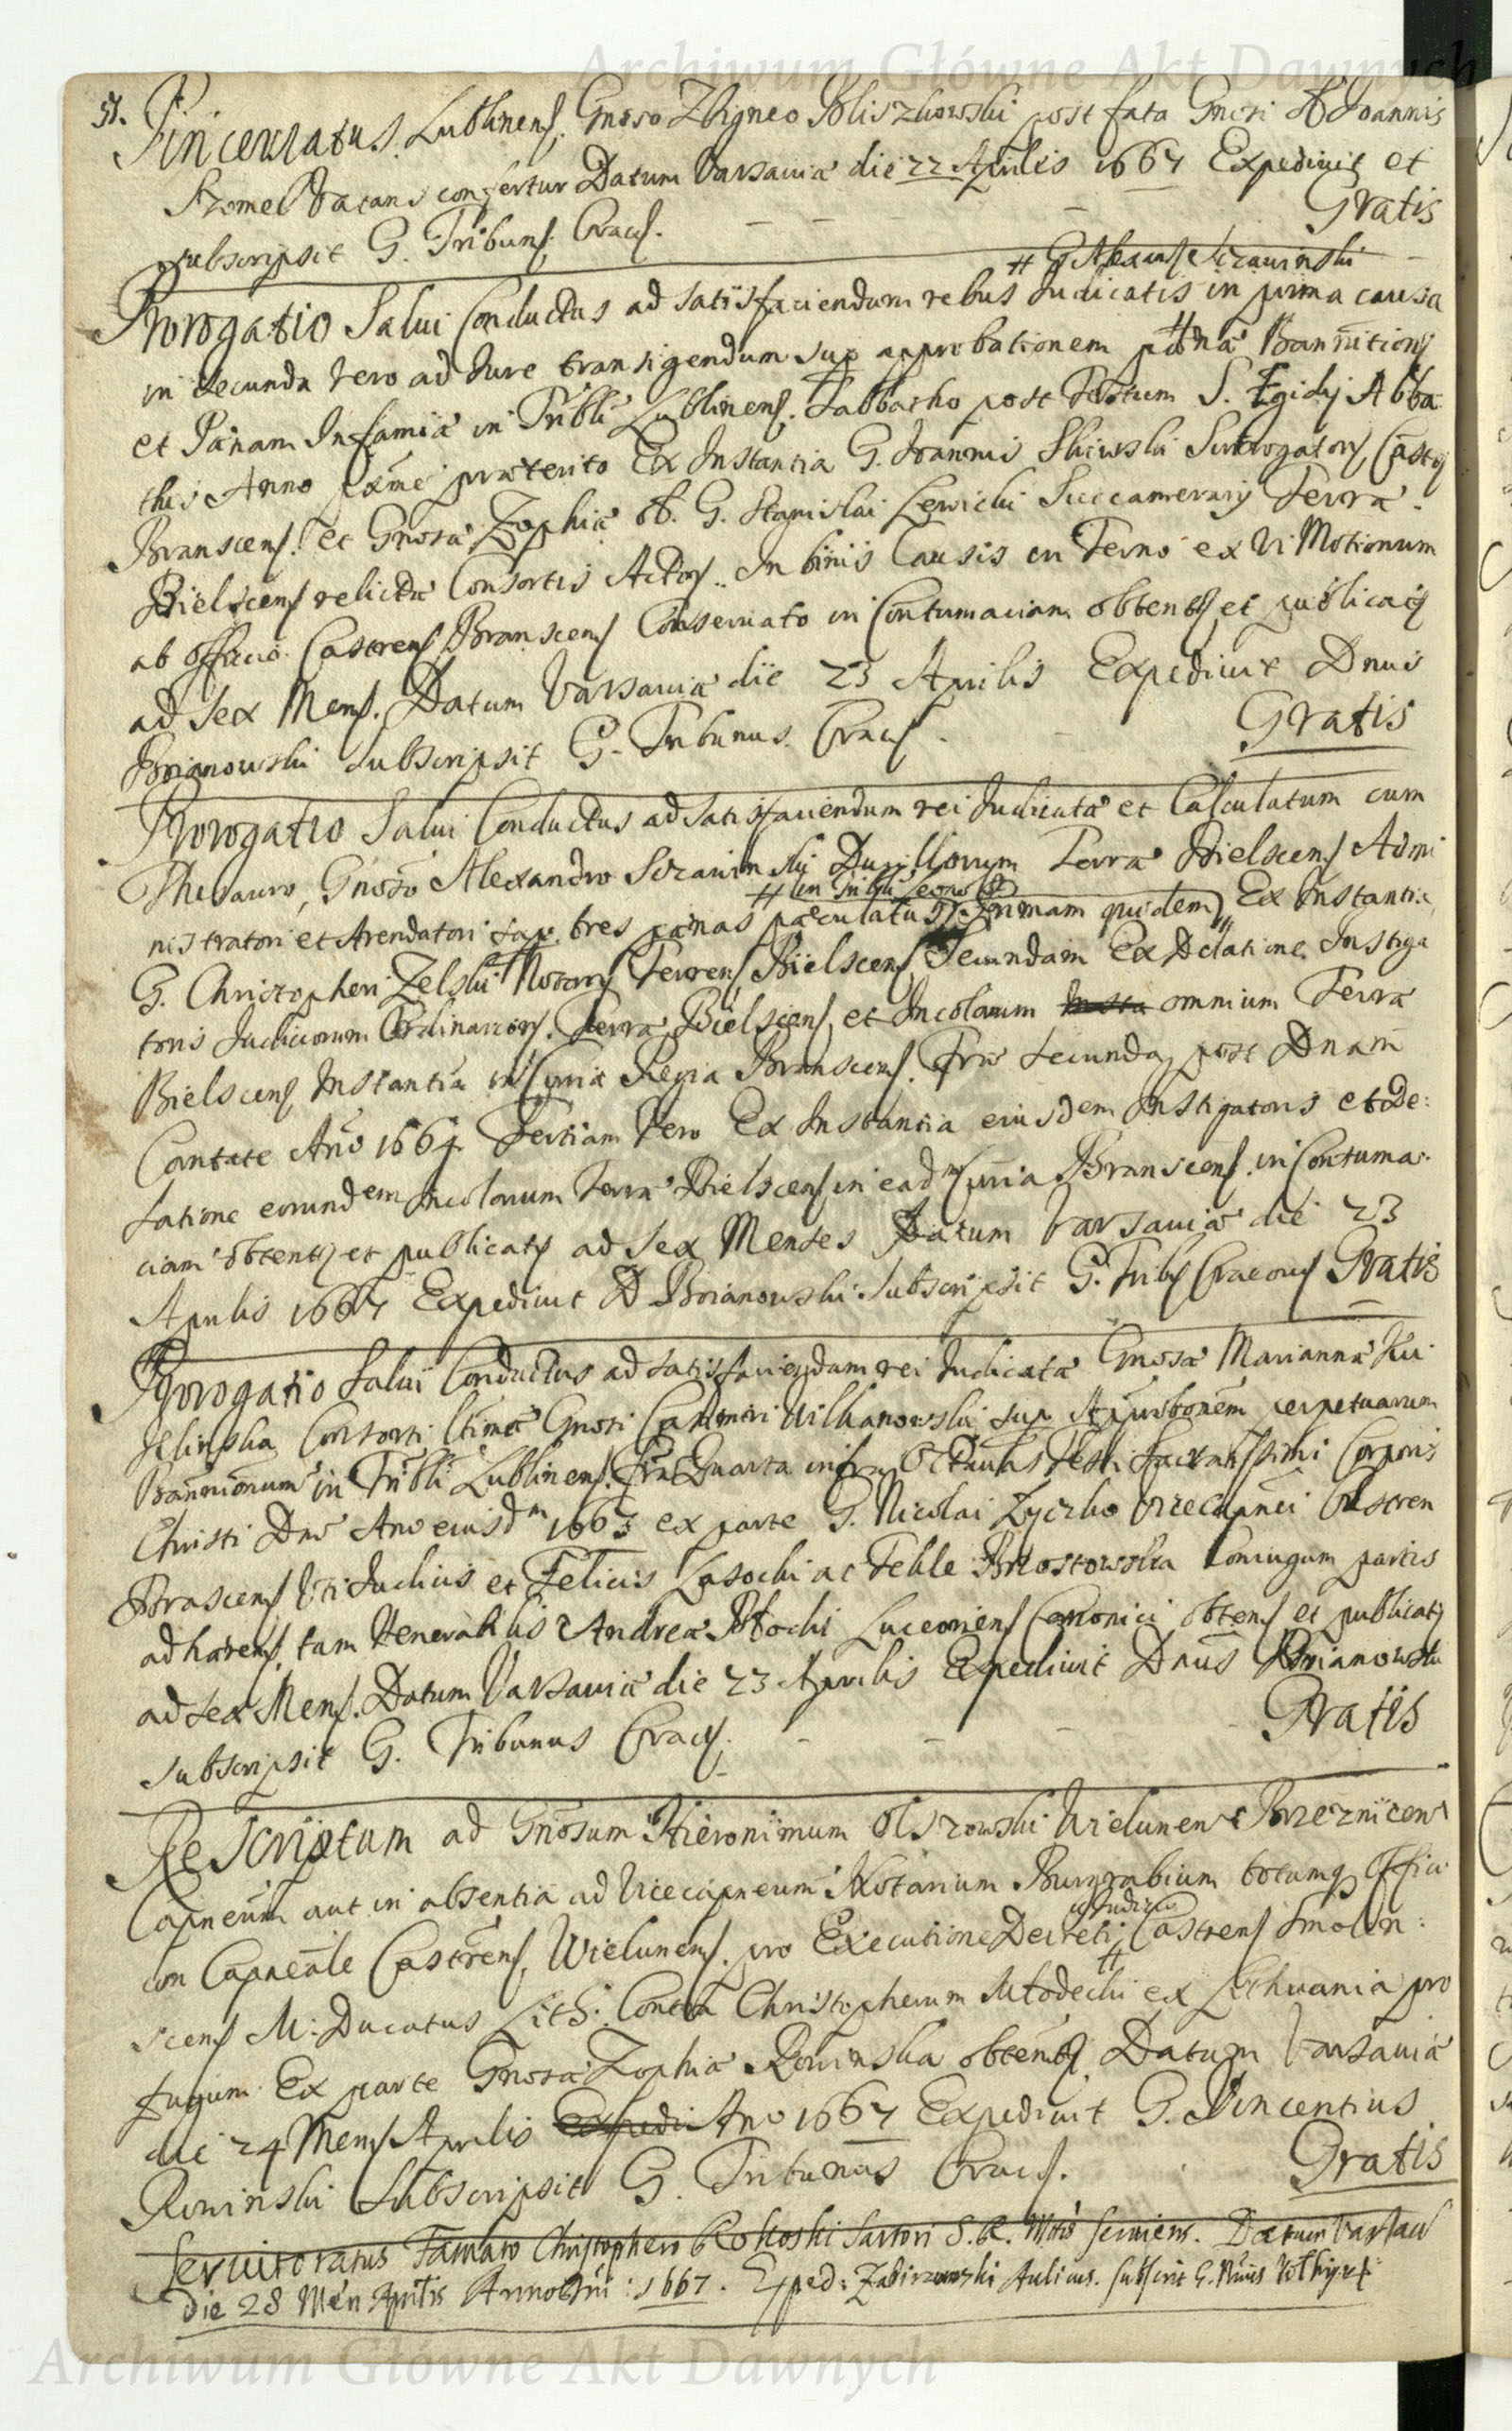 Archiwum Główne Akt Dawnych
51.
Pincernatus Lublinens. Gnoso Zbigneo Soliszkowski post fata Gnosi Joannis
vacans confertur Datum Varsaviæ die 22 Aprilis 1667 Expedivit et
subscripsit G. Tribuns Cracs. Gratis
# G Alexans Sczawinski
Prorogatio Salvi Conductus ad satisfaciendum rebus Judicatis in prima causa
in secunda vero ad Jure transigendum sup approbationem pænæ Bannitionis
et Pænam Infamiæ in Tribli Lublinens. Sabbatho post Festum S. Egidij Abba
this Anno præterito Ex Instantia G. Joannis Skiwski Surrogatory Castrj
Branscens. et Gnosæ Zophiæ ol. G. Stanislai Lewicki Succamerarij Terræ
Bielscens relictæ Consortis Actorj. In binis Causis in Termo ex vi Motionum
ab officio Castrens Branscens Conservato in Contumaciam obtentj et publicatj
ad sex Mens. Datum Varsaviæ die 23 Aprilis Expedivit Dnus
Brianowski subscripsit G. Tribunus Cracs. Gratis
Prorogatio Salvi Conductus ad satisfaciendum rei Judicatæ et Calculatum cum
Thesauro, Gnoso Alexandro Sczawinski Duillorum Terræ Bielscens Admi
nistratori et Arendatori sup tres pænas pæculatus primam quidem Ex Instantia
G. Christopheri Zelski Notarij Terrens Bielscens Secundam Ex Delatione Instiga
toris Judiciorum Ordinariorj. Terræ Bielscens et Incolarum omnium Terræ
Bielscens Instantia in Curia Regia Branscens. Fria secunda post Dnam
Cantate Ano 1664 Tertiam vero Ex Instantia eiusdem Instigatoris et De:
latione eorundem Incolarum Terræ Bielscens in eadm Curia Branscens. in Contuma
ciam obtentj et publicatj ad sex Menses Datum Varsaviæ die 23
Aprilis 1667 Expedivit D Brianowski subscripsit G. Tribs Cracovs Gratis
Prorogatio Salvi Conductus ad satisfaciendum rei Judicatæ Gnosæ Mariannæ Ku
jelinska Consorti ltimæ Gnosi Casimiri Wilkanowski sup perpetuarum
Bannionum in Tribli Lublinens. Fria Quarta infra Octavas Festi Sacratissimi Corporis
Christi Dno Ano eiusdm 1663 ex parte G. Nicolai Zyczko Vicecapnei Castren
Brascens Vti Judicis et Felicis Lasocki ac Brzostowska Coniugum partis
adhærens, tam Venerabilis Andreæ Luceoriens Canonici obtens et publicatj
ad sex Mens. Datum Varsaviæ die 23 Aprilis Expedivit Dnus Brianowski
subscripsit G. Tribunus Cracs. Gratis
Rescriptum ad Gnosum Hieronimum Olszowski Wielunens Brzeznicens
Capneum aut in absentia ad Vicecapneum Notarium Burgrabium totumq Offici
um Capneale Castrens. Wielunens. pro Executione Decreti Castrens Smolen:
scens M: Ducatus Lith: Contra Christopherum Młodecki ex Lithuania pro
fugum Ex parte Gnosæ Zophiæ Rowinska obtentj Datum Varsaviæ
die 24 Mens Aprilis Ano 1667 Expedivit G. Vincentius
Rowinski Subscripsit G. Tribunus Cracs. Gratis
Servitoratus Famato Christophero Rokoski Sartori S. R. Mtis serviens. Datum Varsav
Die 28 Men Aprilis Anno Dni: 1667. Exped: Zabierzowski Aulicus.
Archiwum Główne Akt Dawnych